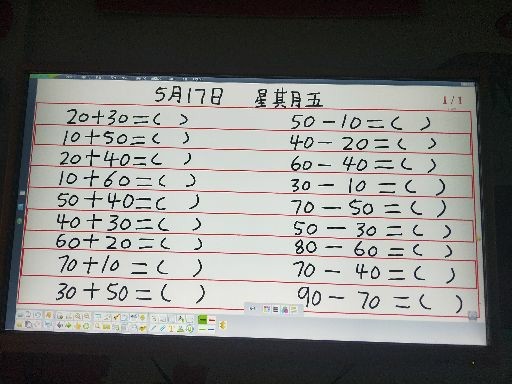 5月17日 星期五
1/1
20+30=( ) 50-10=( )
10+50=( ) 40-20=( )
20+40=( ) 60-40=( )
10+60=( ) 30-10=( )
50+40=( ) 70-50=( )
40+30=( ) 50-30=( )
60+20=( ) 80-60=( )
70+10=( ) 70-40=( )
30+50=( ) 90-70=( )